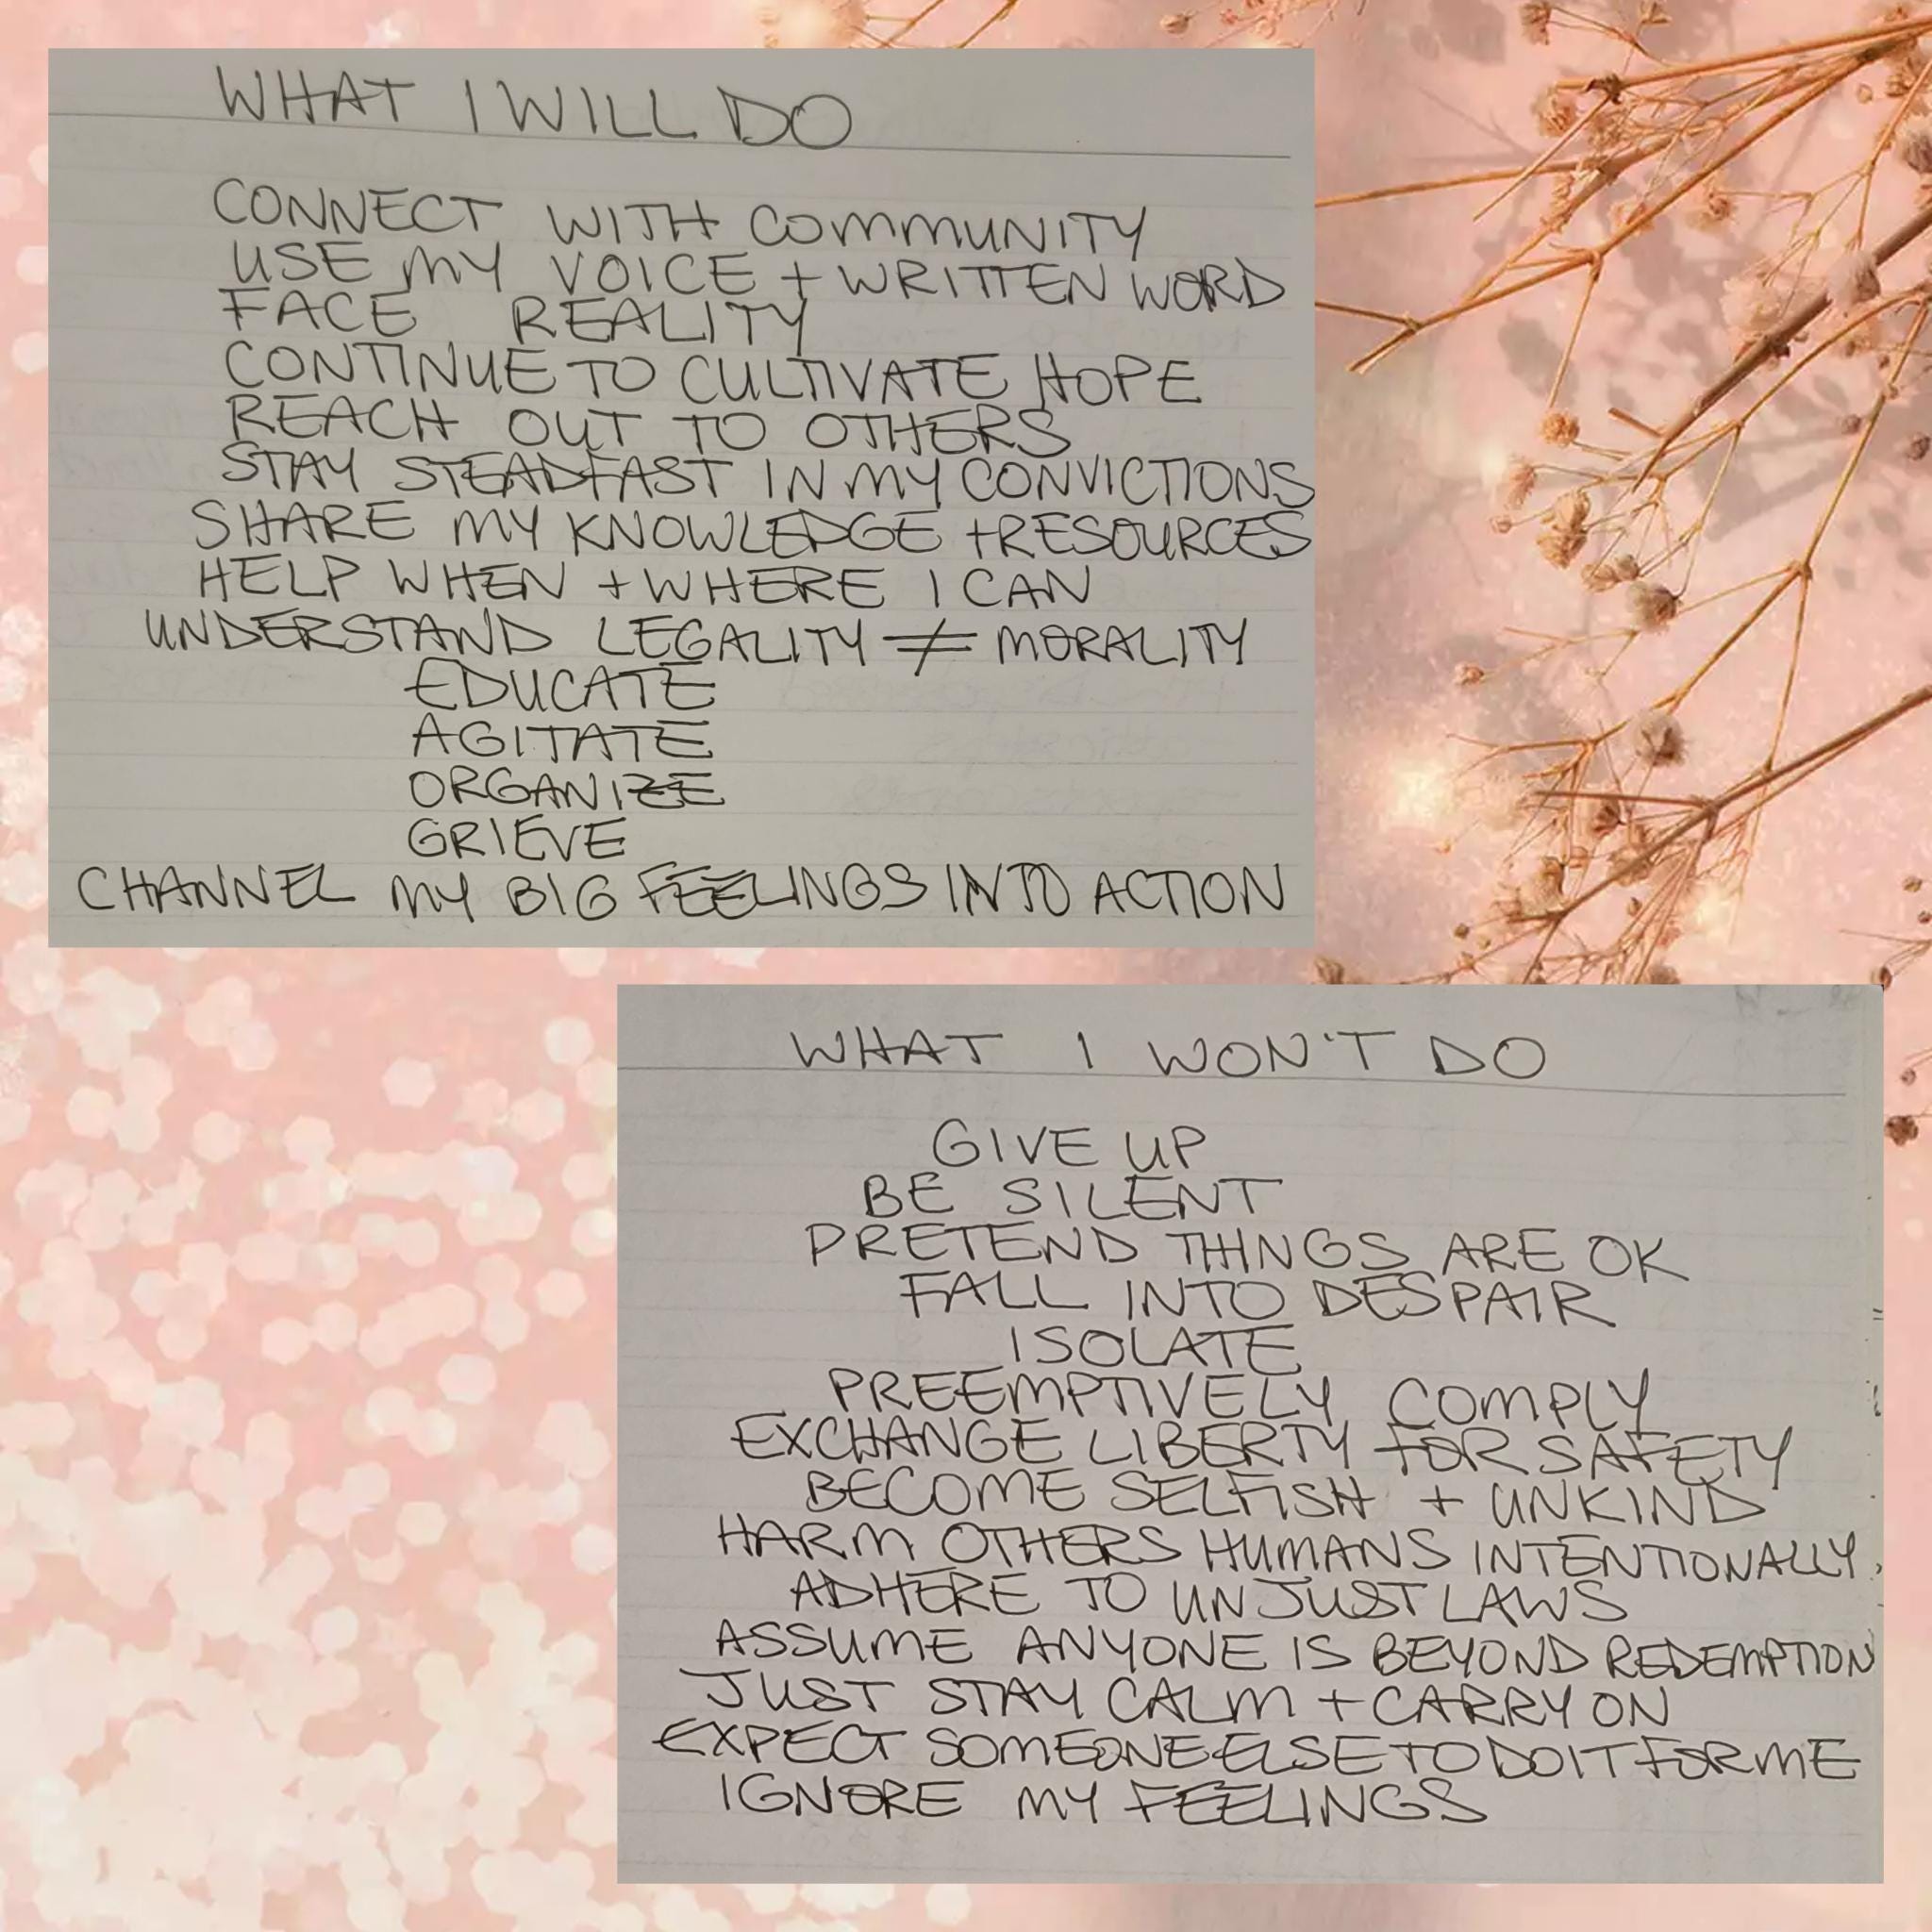 WHAT I WILL DO
CONNECT WITH COMMUNITY
USE MY VOICE + WRITTEN WORD
FACE REALITY
CONTINUE TO CULTIVATE HOPE
REACH OUT TO OTHERS
STAY STEADFAST IN MY CONVICTIONS
SHARE MY KNOWLEDGE + RESOURCES
HELP WHEN + WHERE I CAN
UNDERSTAND LEGALITY ≠ MORALITY
EDUCATE
AGITATE
ORGANIZE
GRIEVE
CHANNEL MY BIG FEELINGS INTO ACTION
WHAT I WON'T DO
GIVE UP
BE SILENT
PRETEND THINGS ARE OK
FALL INTO DESPAIR
ISOLATE
PREEMPTIVELY COMPLY
EXCHANGE LIBERTY FOR SAFETY
BECOME SELFISH + UNKIND
HARM OTHERS HUMANS INTENTIONALLY
ADHERE TO UNJUST LAWS
ASSUME ANYONE IS BEYOND REDEMPTION
JUST STAY CALM + CARRY ON
EXPECT SOMEONE ELSE TO DO IT FOR ME
IGNORE MY FEELINGS